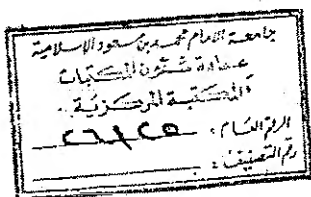 جامعة الامام محمد بن سعود الإسلامية
عمادة شئون المكتبات
المكتبة المركزية
الرقم العام :
رقم التصنيف :